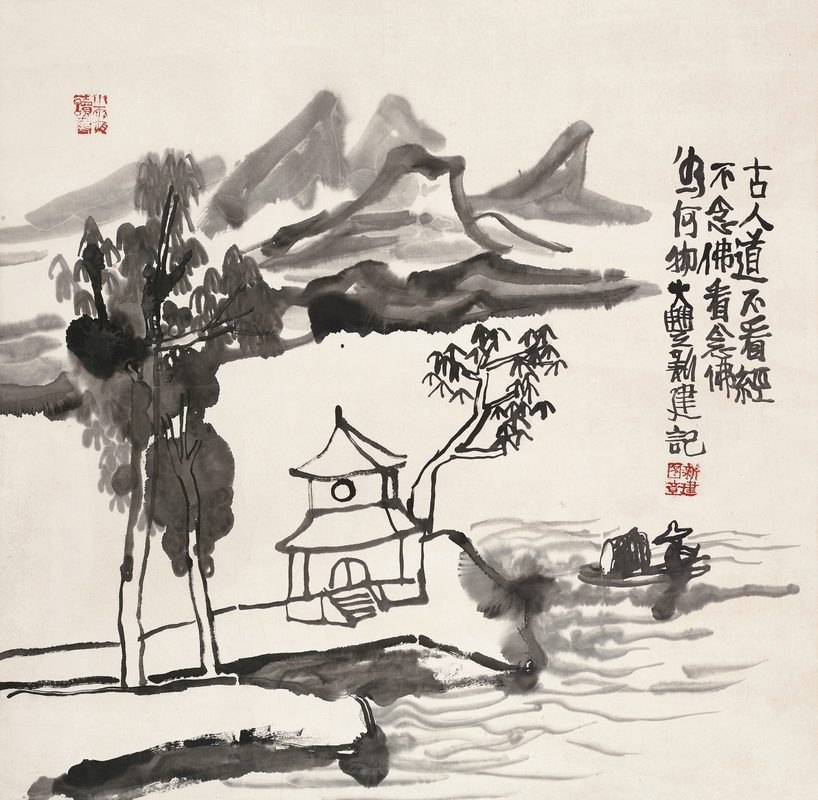 古人道不看經
不念佛看念佛
為何物大豐新建記
新建